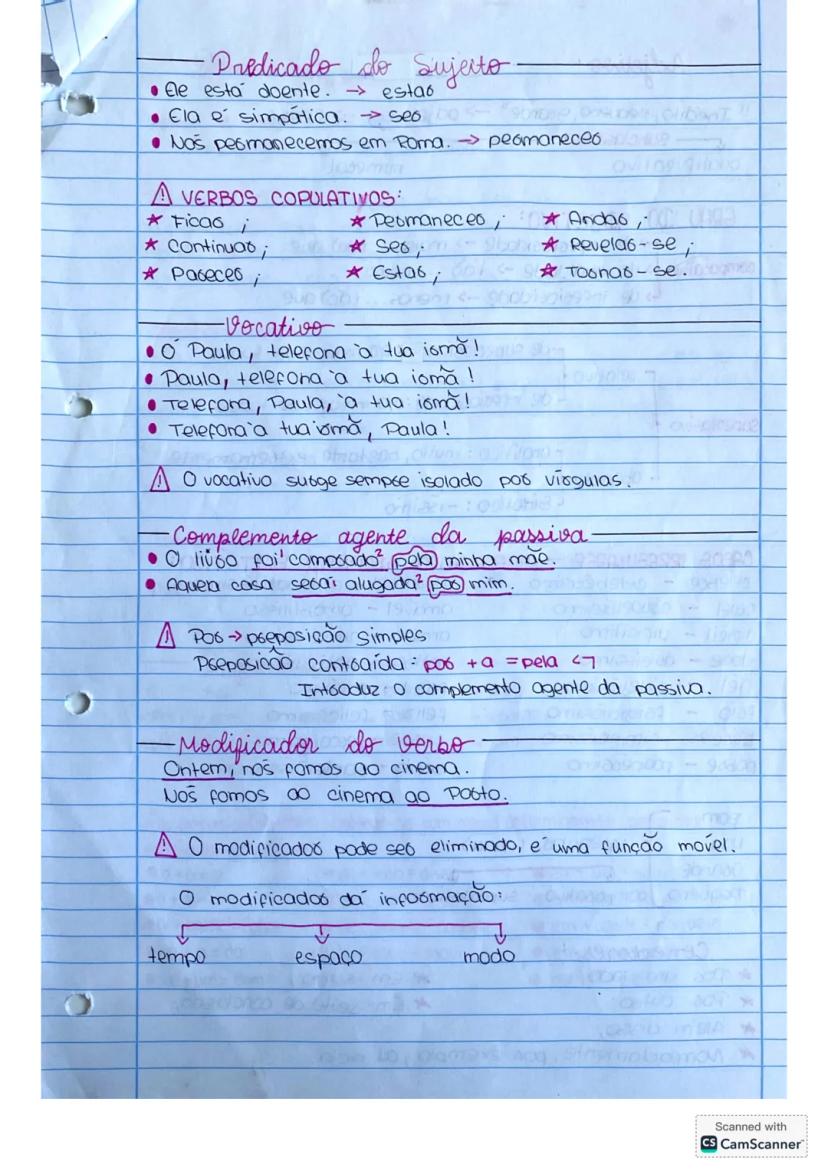 Predicado do Sujeito
• Ele está doente. → estar
• Ela é simpática. → ser
• Nós permanecemos em Roma. → permanecer
⚠ VERBOS COPULATIVOS:
★ Ficar ; ★ Permanecer ; ★ Andar ;
★ Continuar ; ★ Ser ; ★ Revelar-se ;
★ Parecer ; ★ Estar ; ★ Tornar-se .
Vocativo
• Ó Paula, telefona à tua irmã!
• Paula, telefona à tua irmã!
• Telefona, Paula, à tua irmã!
• Telefona à tua irmã, Paula!
⚠ O vocativo surge sempre isolado por vírgulas.
Complemento agente da passiva
• O livro foi¹ comprado² pela minha mãe.
• Aquela casa será¹ alugada² por mim.
⚠ Por → preposição simples
Preposição contraída: por + a = pela
Introduz o complemento agente da passiva.
Modificador do verbo
Ontem, nós fomos ao cinema.
Nós fomos ao cinema ao Porto.
⚠ O modificador pode ser eliminado, é uma função móvel.
O modificador dá informação:
tempo espaço modo
Scanned with
CS CamScanner